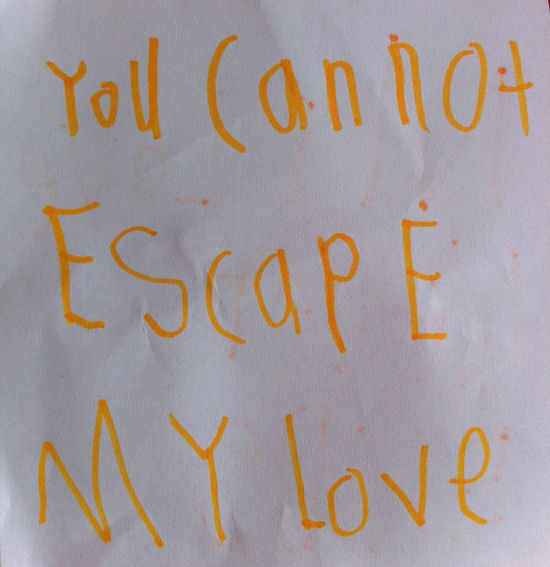 You cannot
EscapE
MY Love